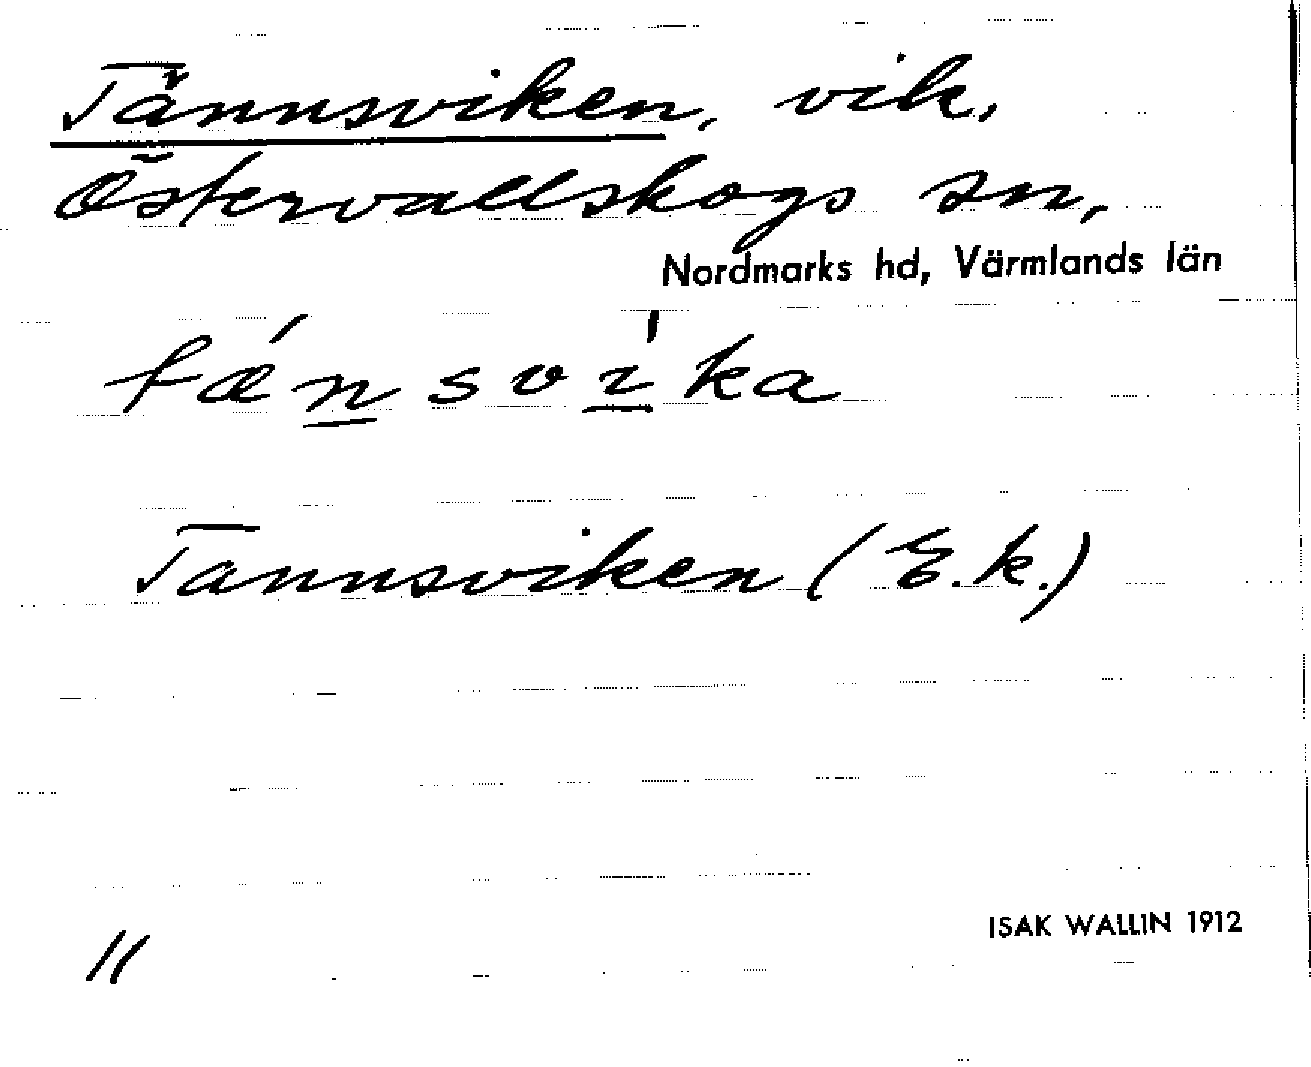 Tännsviken, vik,
Östervallskogs sn,
Nordmarks hd, Värmlands län
tǽn̲svi̲̍ka
Tannsviken (E.k.)
11
ISAK WALLIN 1912